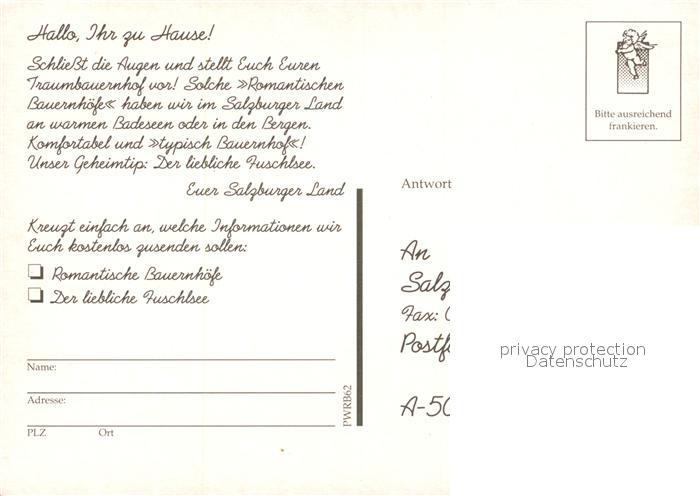 Hallo, Ihr zu Hause!
Schließt die Augen und stellt Euch Euren
Traumbauernhof vor! Solche »Romantischen
Bauernhöfe« haben wir im Salzburger Land
an warmen Badeseen oder in den Bergen.
Komfortabel und »typisch Bauernhof«!
Unser Geheimtip: Der liebliche Fuschlsee.
Euer Salzburger Land
Kreuzt einfach an, welche Informationen wir
Euch kostenlos zusenden sollen:
Romantische Bauernhöfe
Der liebliche Fuschlsee
Name:
Adresse:
PLZ Ort
PWRB62
Bitte ausreichend
frankieren.
Antwort
An
Salz
Fax:
Postf
A-50
privacy protection
Datenschutz